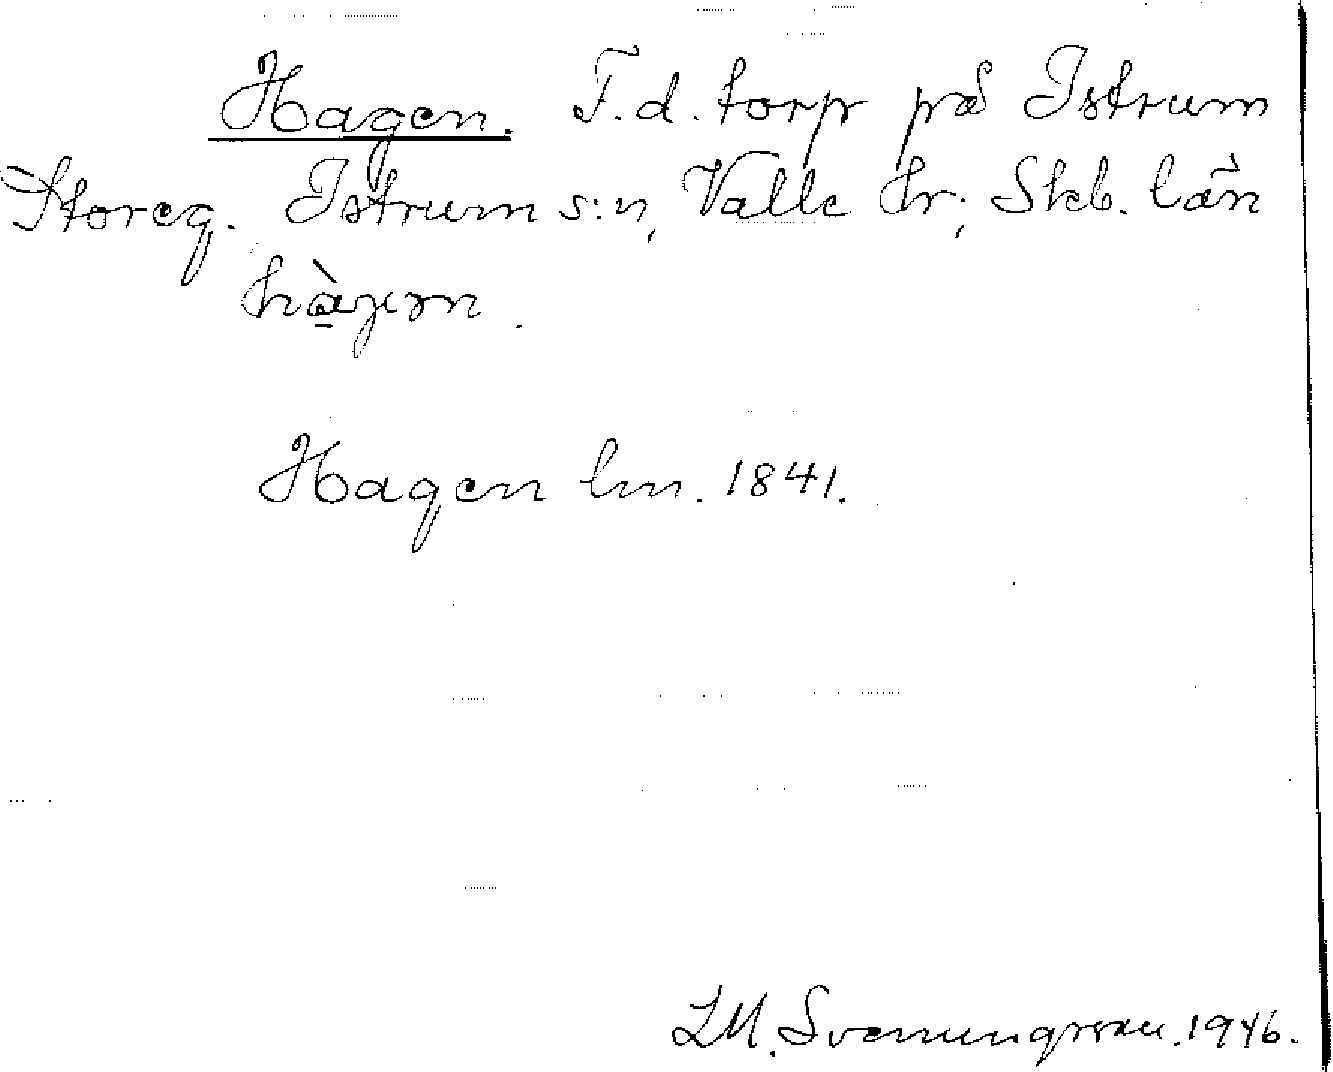 Hagen. F.d. torp på Istrum
Storeg. Istrum s:n, Valle hr., Skb. län
hàgen.
Hagen lm. 1841.
L.M. Svenungsson. 1946.